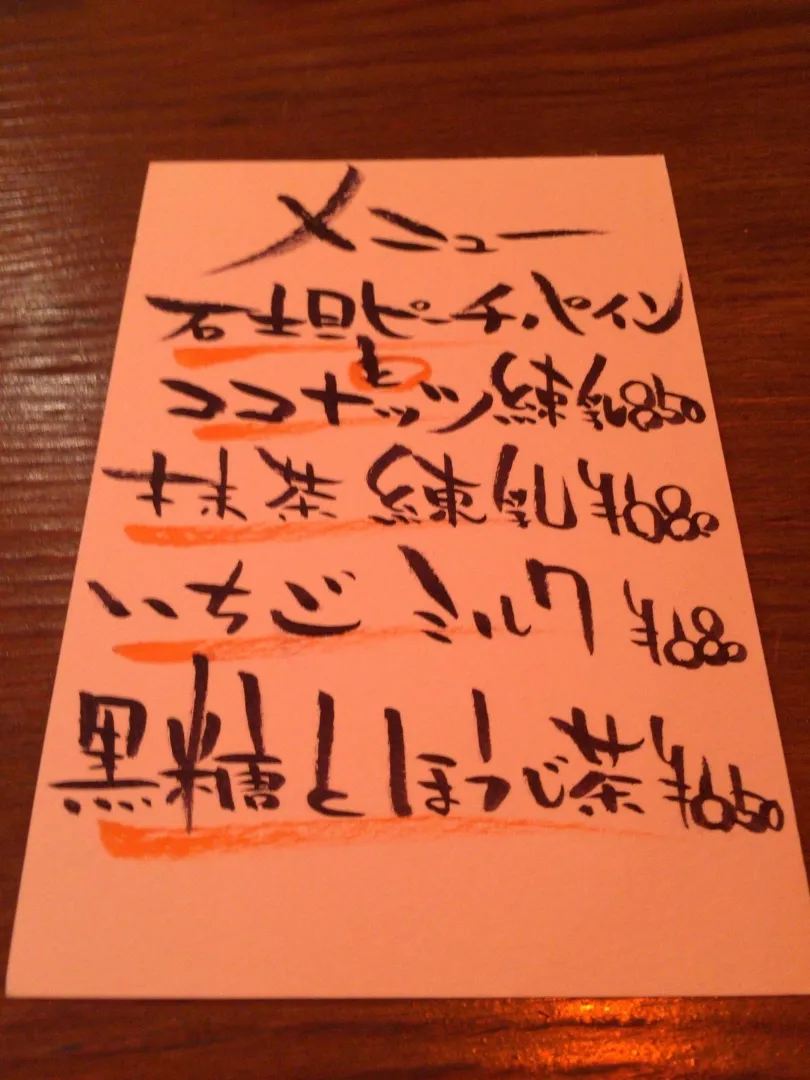 メニュー
石垣ピーチパイン
と
ココナッツ練乳850
抹茶 練乳 ¥680
いちご ミルク ¥680
黒糖とほうじ茶 ¥650